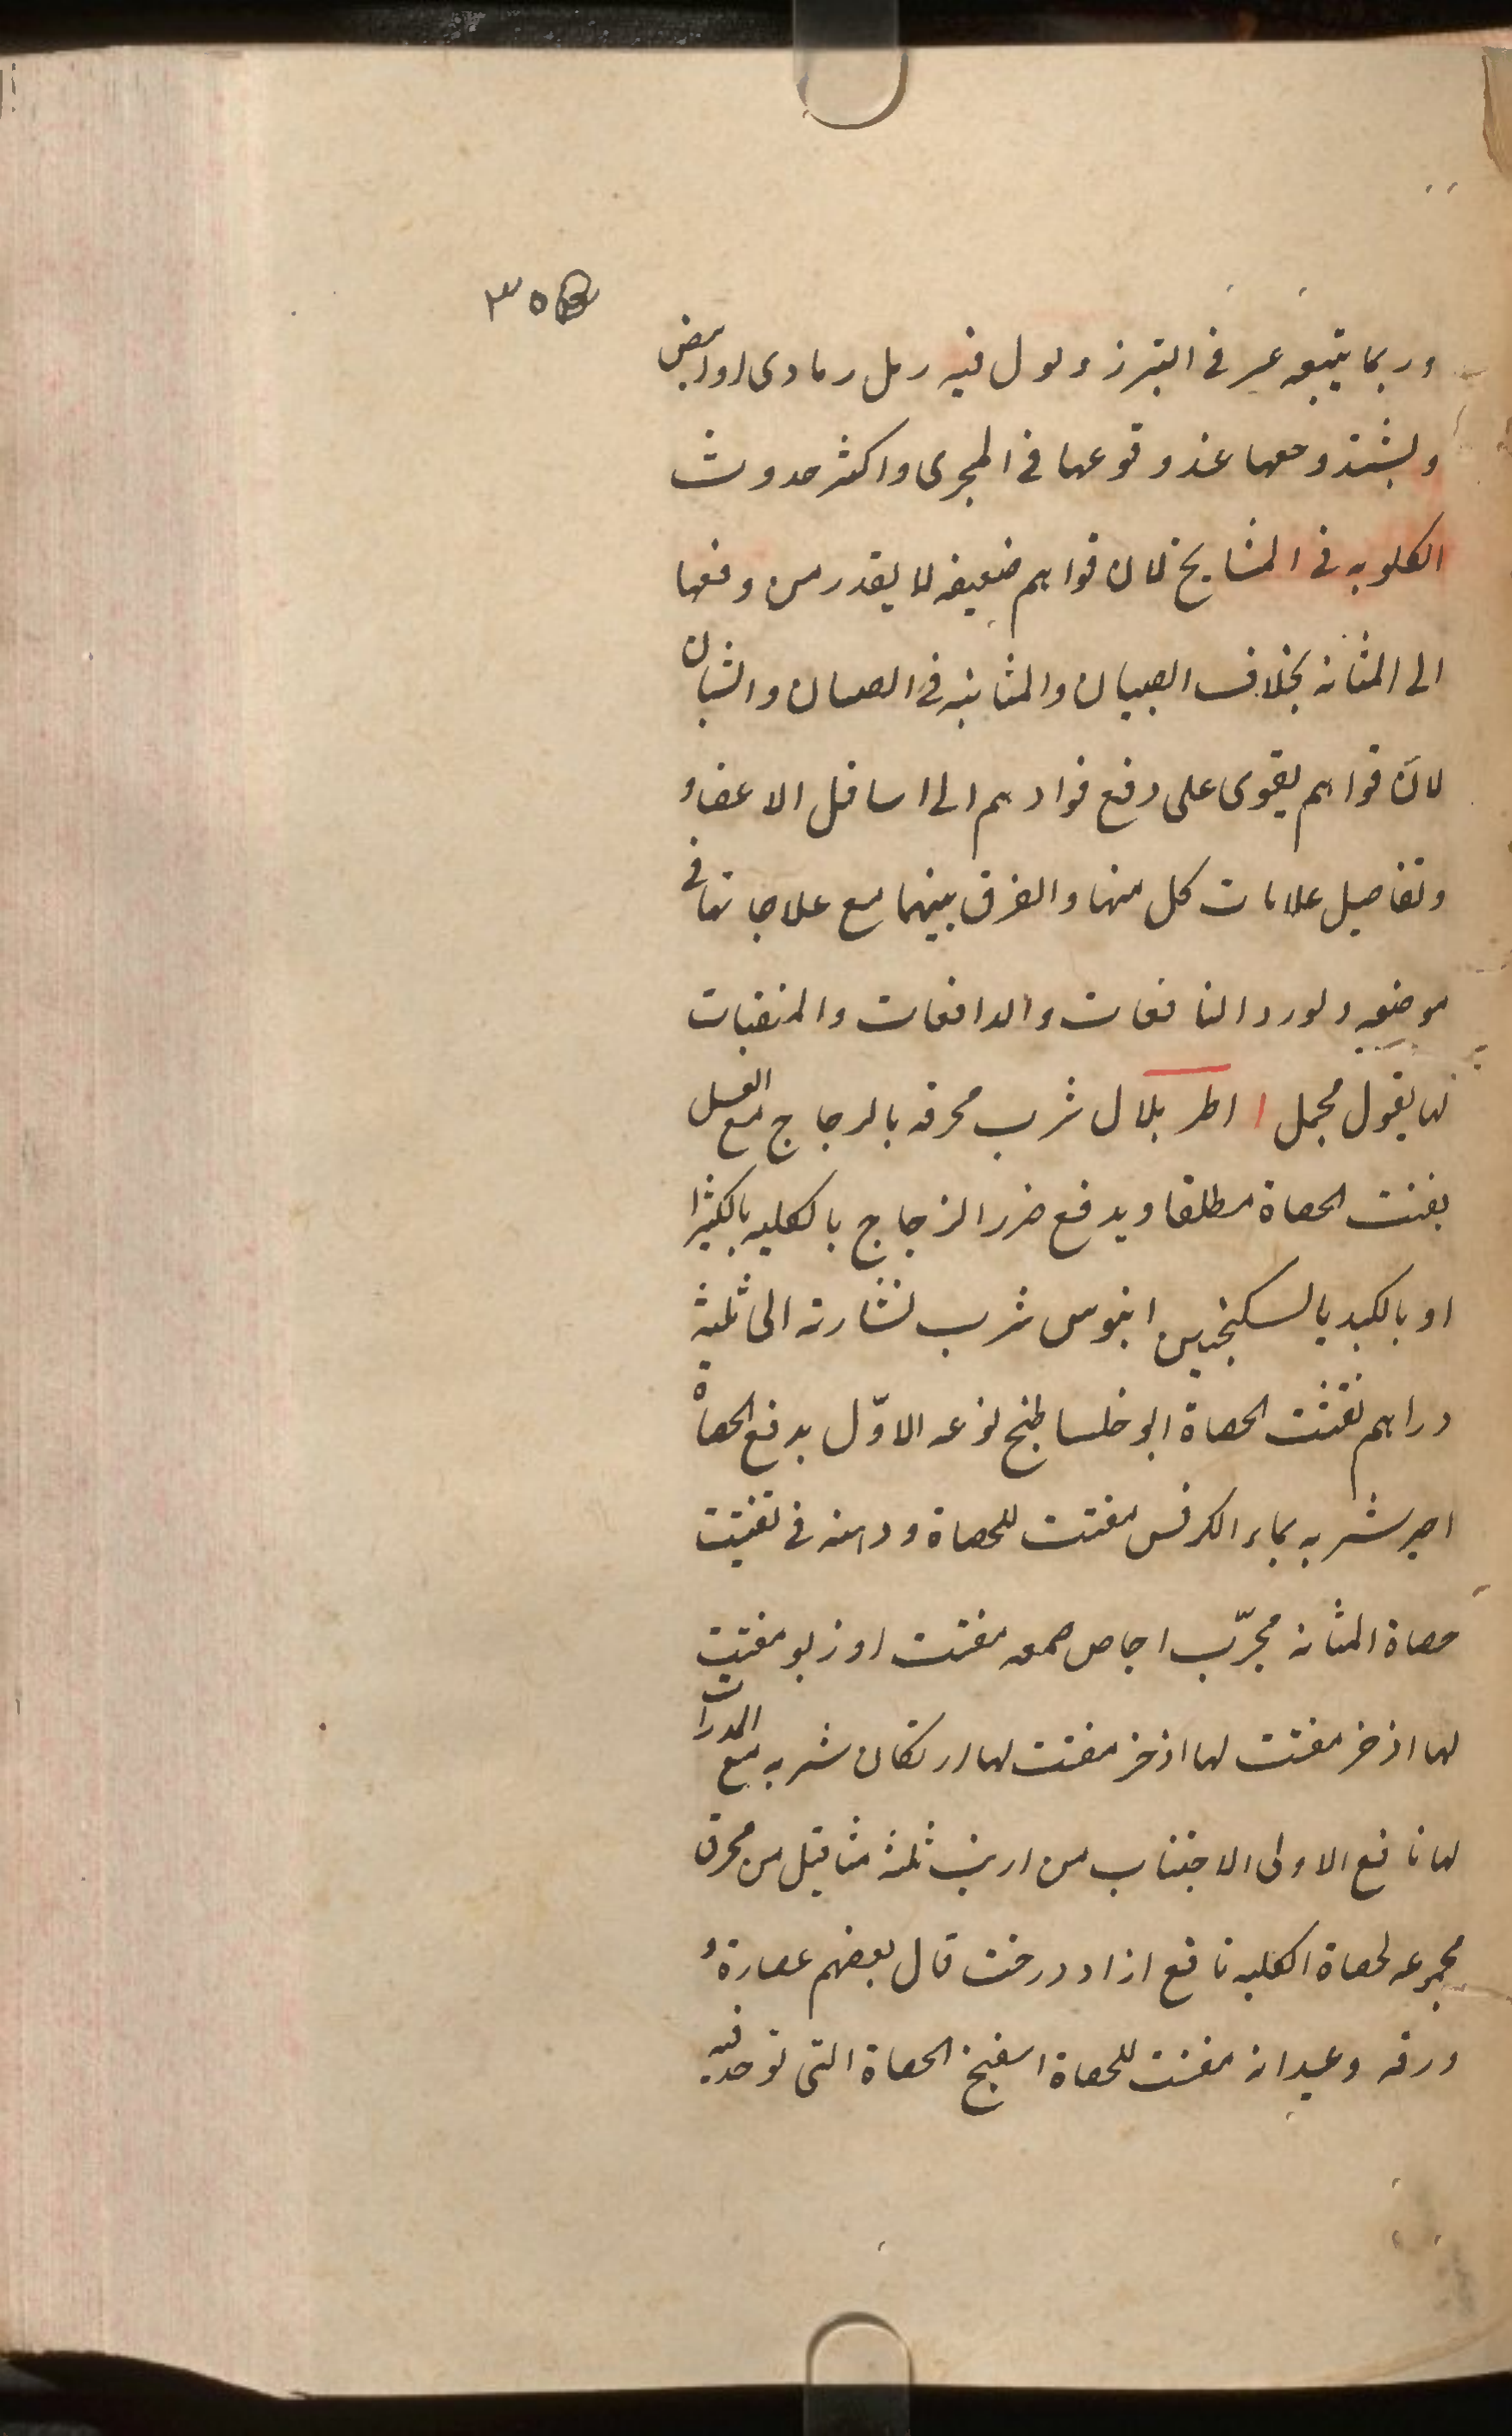 ٣٥
وربما يتبعه عسر فى التبرز وبول فيه رمل رمادى او ابيض
ويشتد وجعها عند وقوعها فى المجرى واكثر حدوث
الكلويه فى المشايخ لان قواهم ضعيفه لا يقدر من دفعها
الى المثانه بخلاف الصبيان والمثانيه فى الصبيان والشبان
لان قواهم يقوى على دفع موادهم الى اسافل الاعضاء
وتفاصيل علامات كل منها والفرق بينهما مع علاجاتها فى
موضعه ولورد النافعات والدافعات والمنقيات
لها بقول مجمل اطريلال شرب محرقه بالزجاج مع العسل
يفتت الحصاة مطلقا ويدفع ضرر الزجاج بالكليه بالكثيرا
او بالكبد بالسكنجبين ابنوس شرب نشارته الى ثلثة
دراهم تفتت الحصاة ابوخلسا طبخ نوعه الاوّل يدفع الحصاة
شربه بماء الكرفس مفتت للحصاة ودهنه فى تفتيت
حصاة المثانه مجرّب اجاص صمغه مفتت مفتت
لها اذخر مفتت لها اذخر مفتت لها ارتكان شربه مع المدرات
لها نافع الاولى الاجتناب من ارنب ثلثه مثاقيل من محرق
مجموعه لحصاة الكليه نافع ازاد درخت قال بعضهم عصارة
ورقه وعيدانه مفتت للحصاة اسفنج الحصاة التى توجد فيه